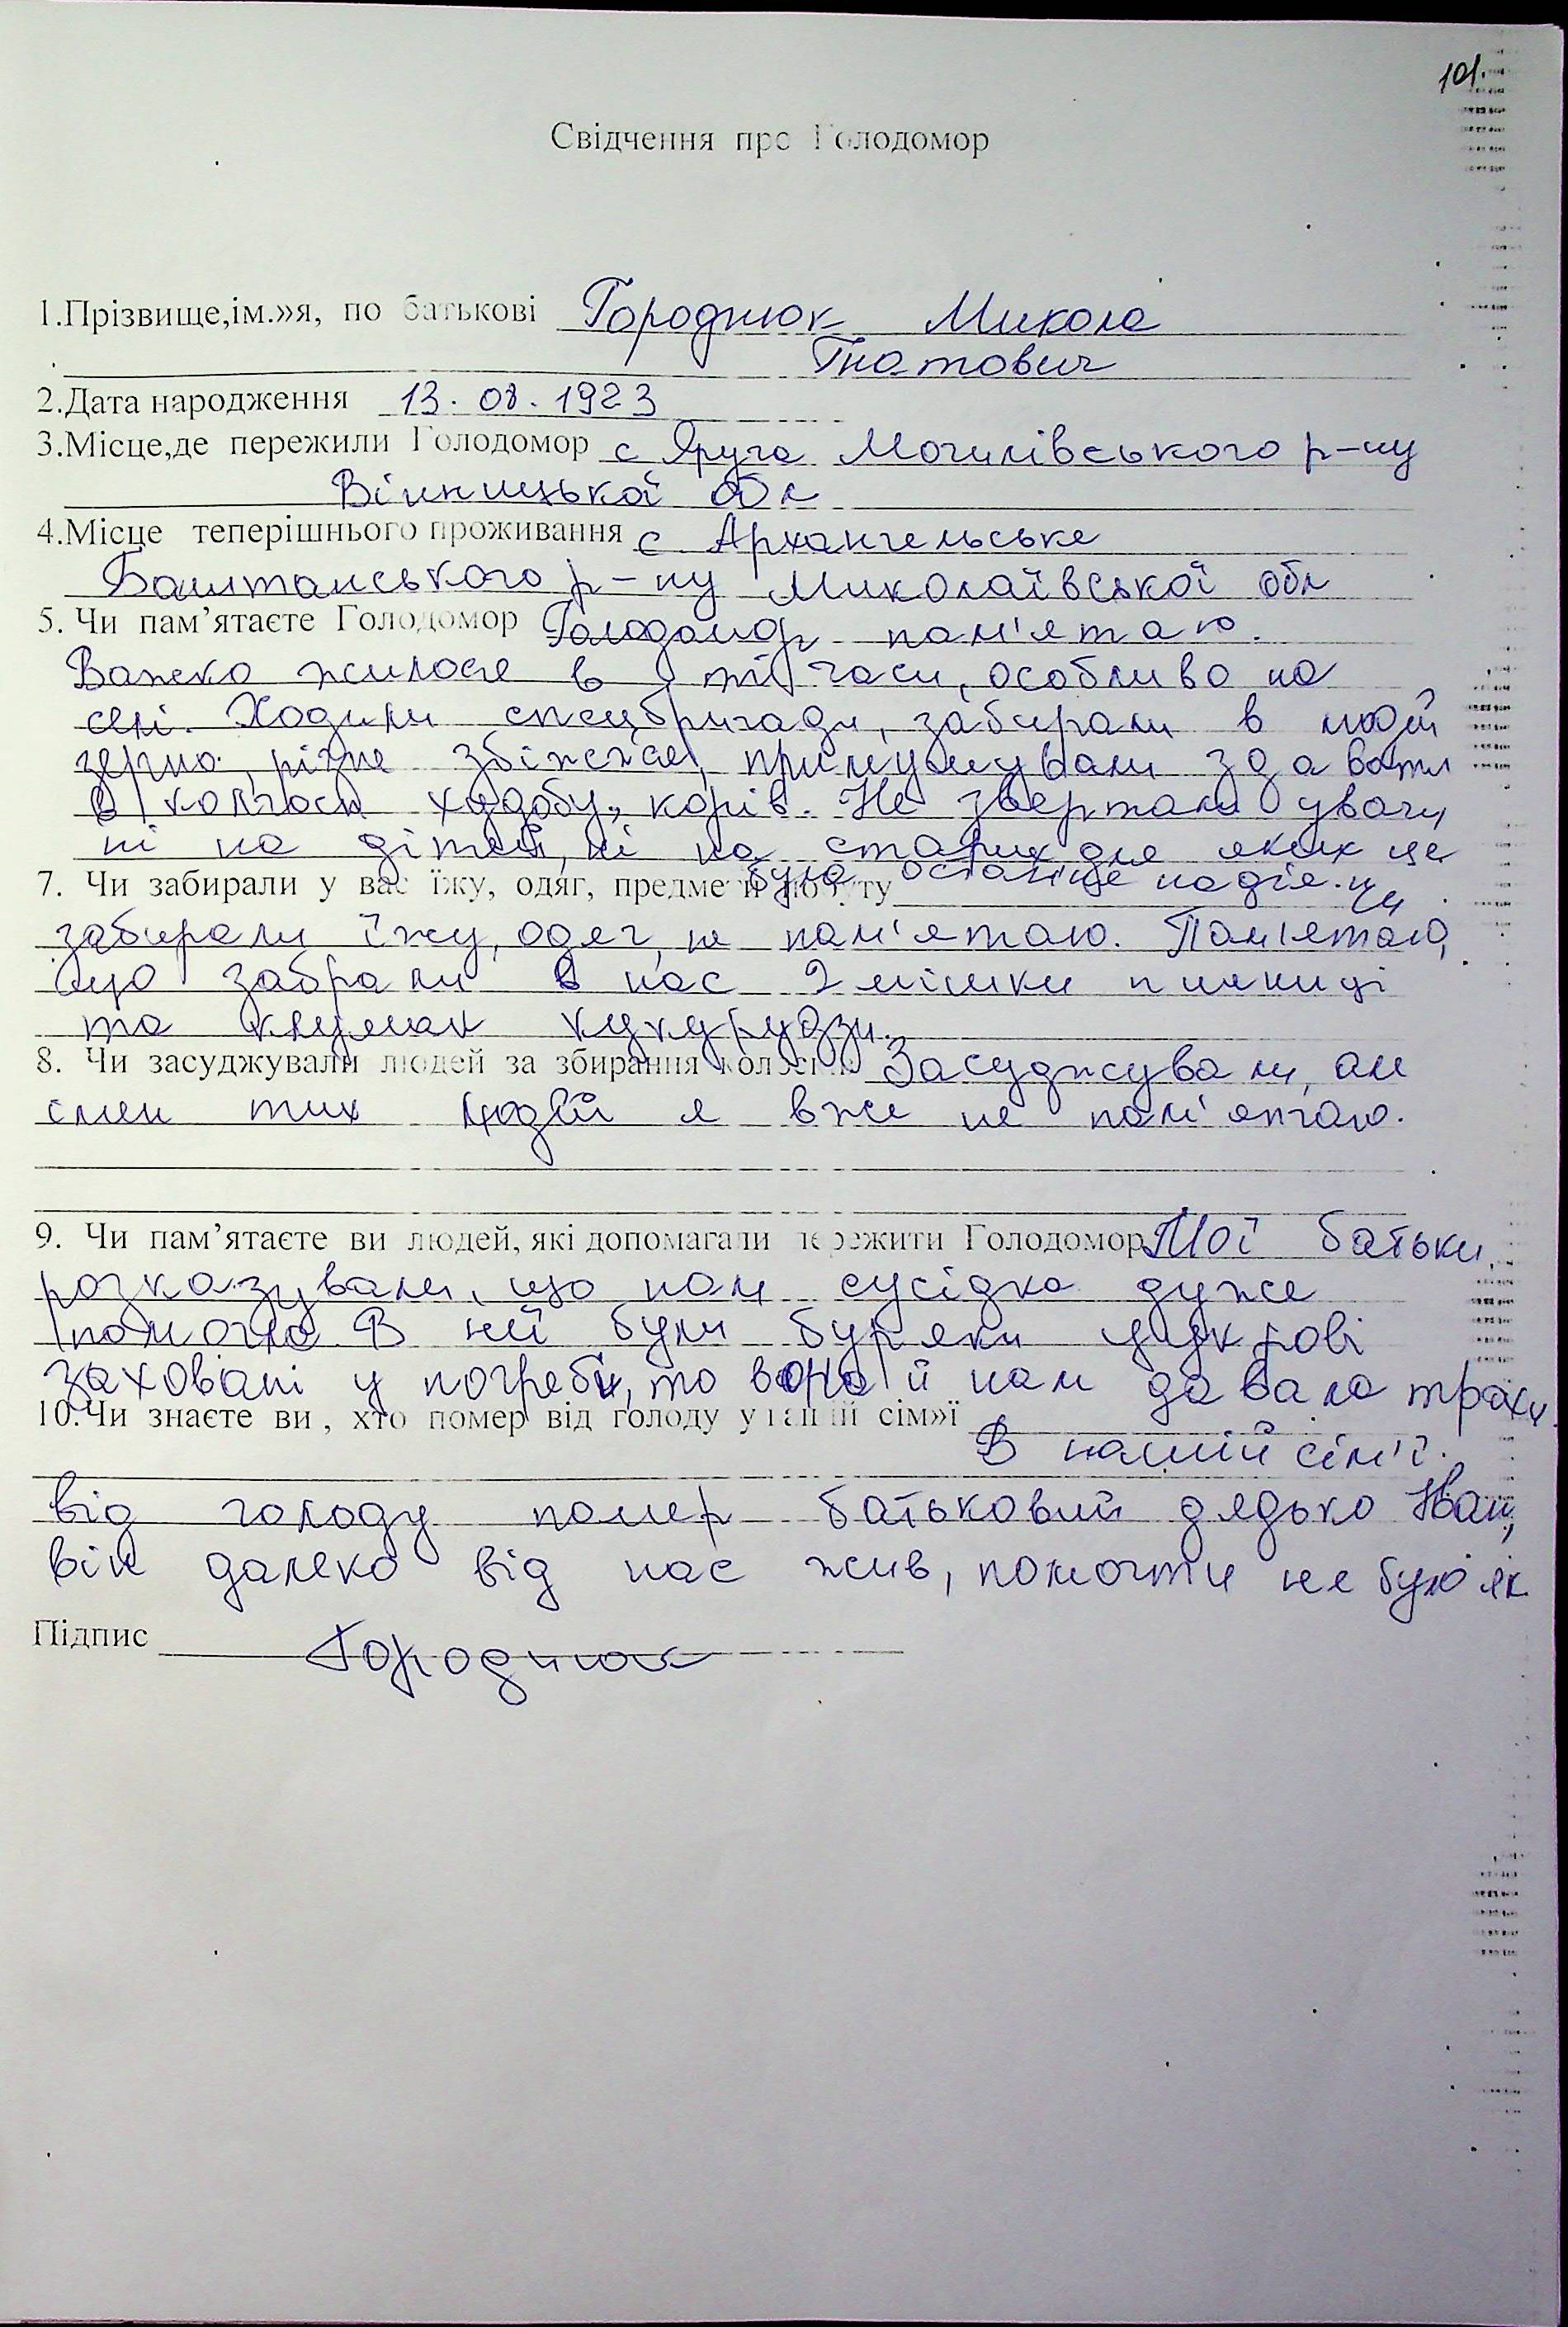 101.
Свідчення про Голодомор
1.Прізвище,ім.»я, по батькові Городнюк Микола
Гнатович
2.Дата народження 13.08.1923
3.Місце,де пережили Голодомор с Яруга Могилівського р-ну
Вінницької обл
4.Місце теперішнього проживання с Архангельське
Баштанського р-ну Миколаївської обл
5. Чи пам’ятаєте Голодомор Голодомор пам'ятаю.
Важко жилося в ті часи, особливо на
селі. Ходили спецбригади, забирали в людей
зерно, різне збіжжя, примушували здавати
в колгосп худобу, корів. Не звертали уваги
ні на дітей, ні на старих для яких це
була остання надія.
7. Чи забирали у вас їжу, одяг, предмети побуту Чи
забирали їжу, одяг, не пам'ятаю. Пам'ятаю,
що забрали в нас 2 мішки пшениці
та клунок кукурудзи.
8. Чи засуджували людей за збирання колосків Засуджували, але
імен тих людей я вже не пам'ятаю.
9. Чи пам’ятаєте ви людей, які допомагали пережити Голодомор Мої батьки
розказували, що нам сусідка дуже
помогла. В неї були буряки цукрові
заховані у погребі, то вона й нам давала трохи.
10.Чи знаєте ви, хто помер від голоду у вашій сім»ї
В нашій сім'ї
від голоду помер батьковий дядько Іван,
він далеко від нас жив, помогти не було як
Підпис Городнюк